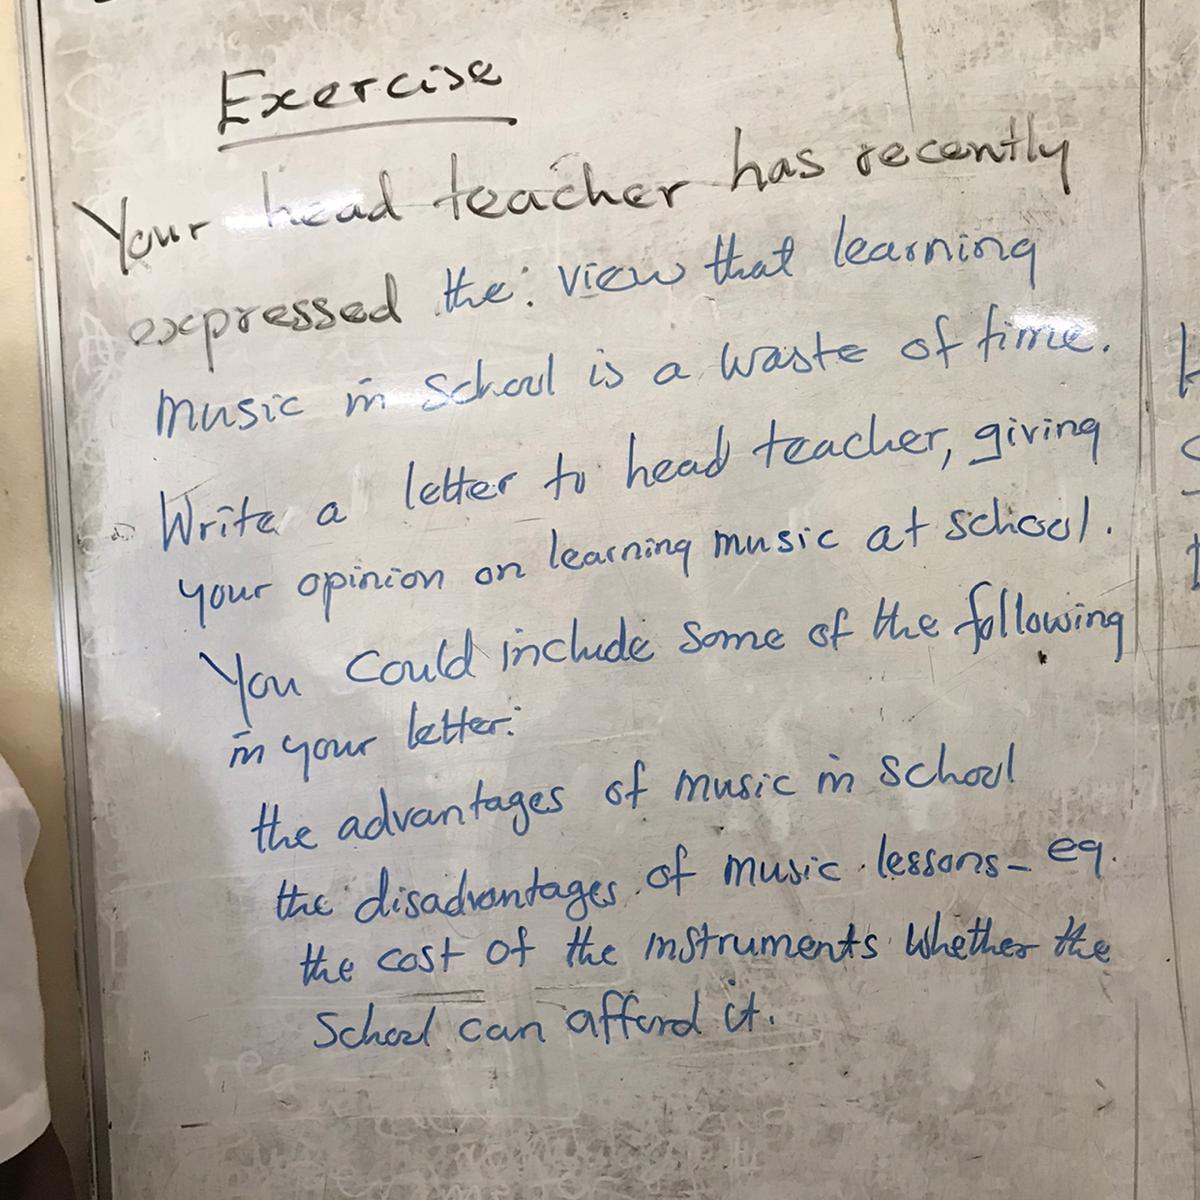 Exercise
Your head teacher has recently
expressed the: view that learning
music in school is a waste of time.
Write a letter to head teacher, giving
your opinion on learning music at school.
You could include some of the following
in your letter:
the advantages of music in school
the disadvantages of music lessons - eg.
the cost of the instruments whether the
school can afford it.